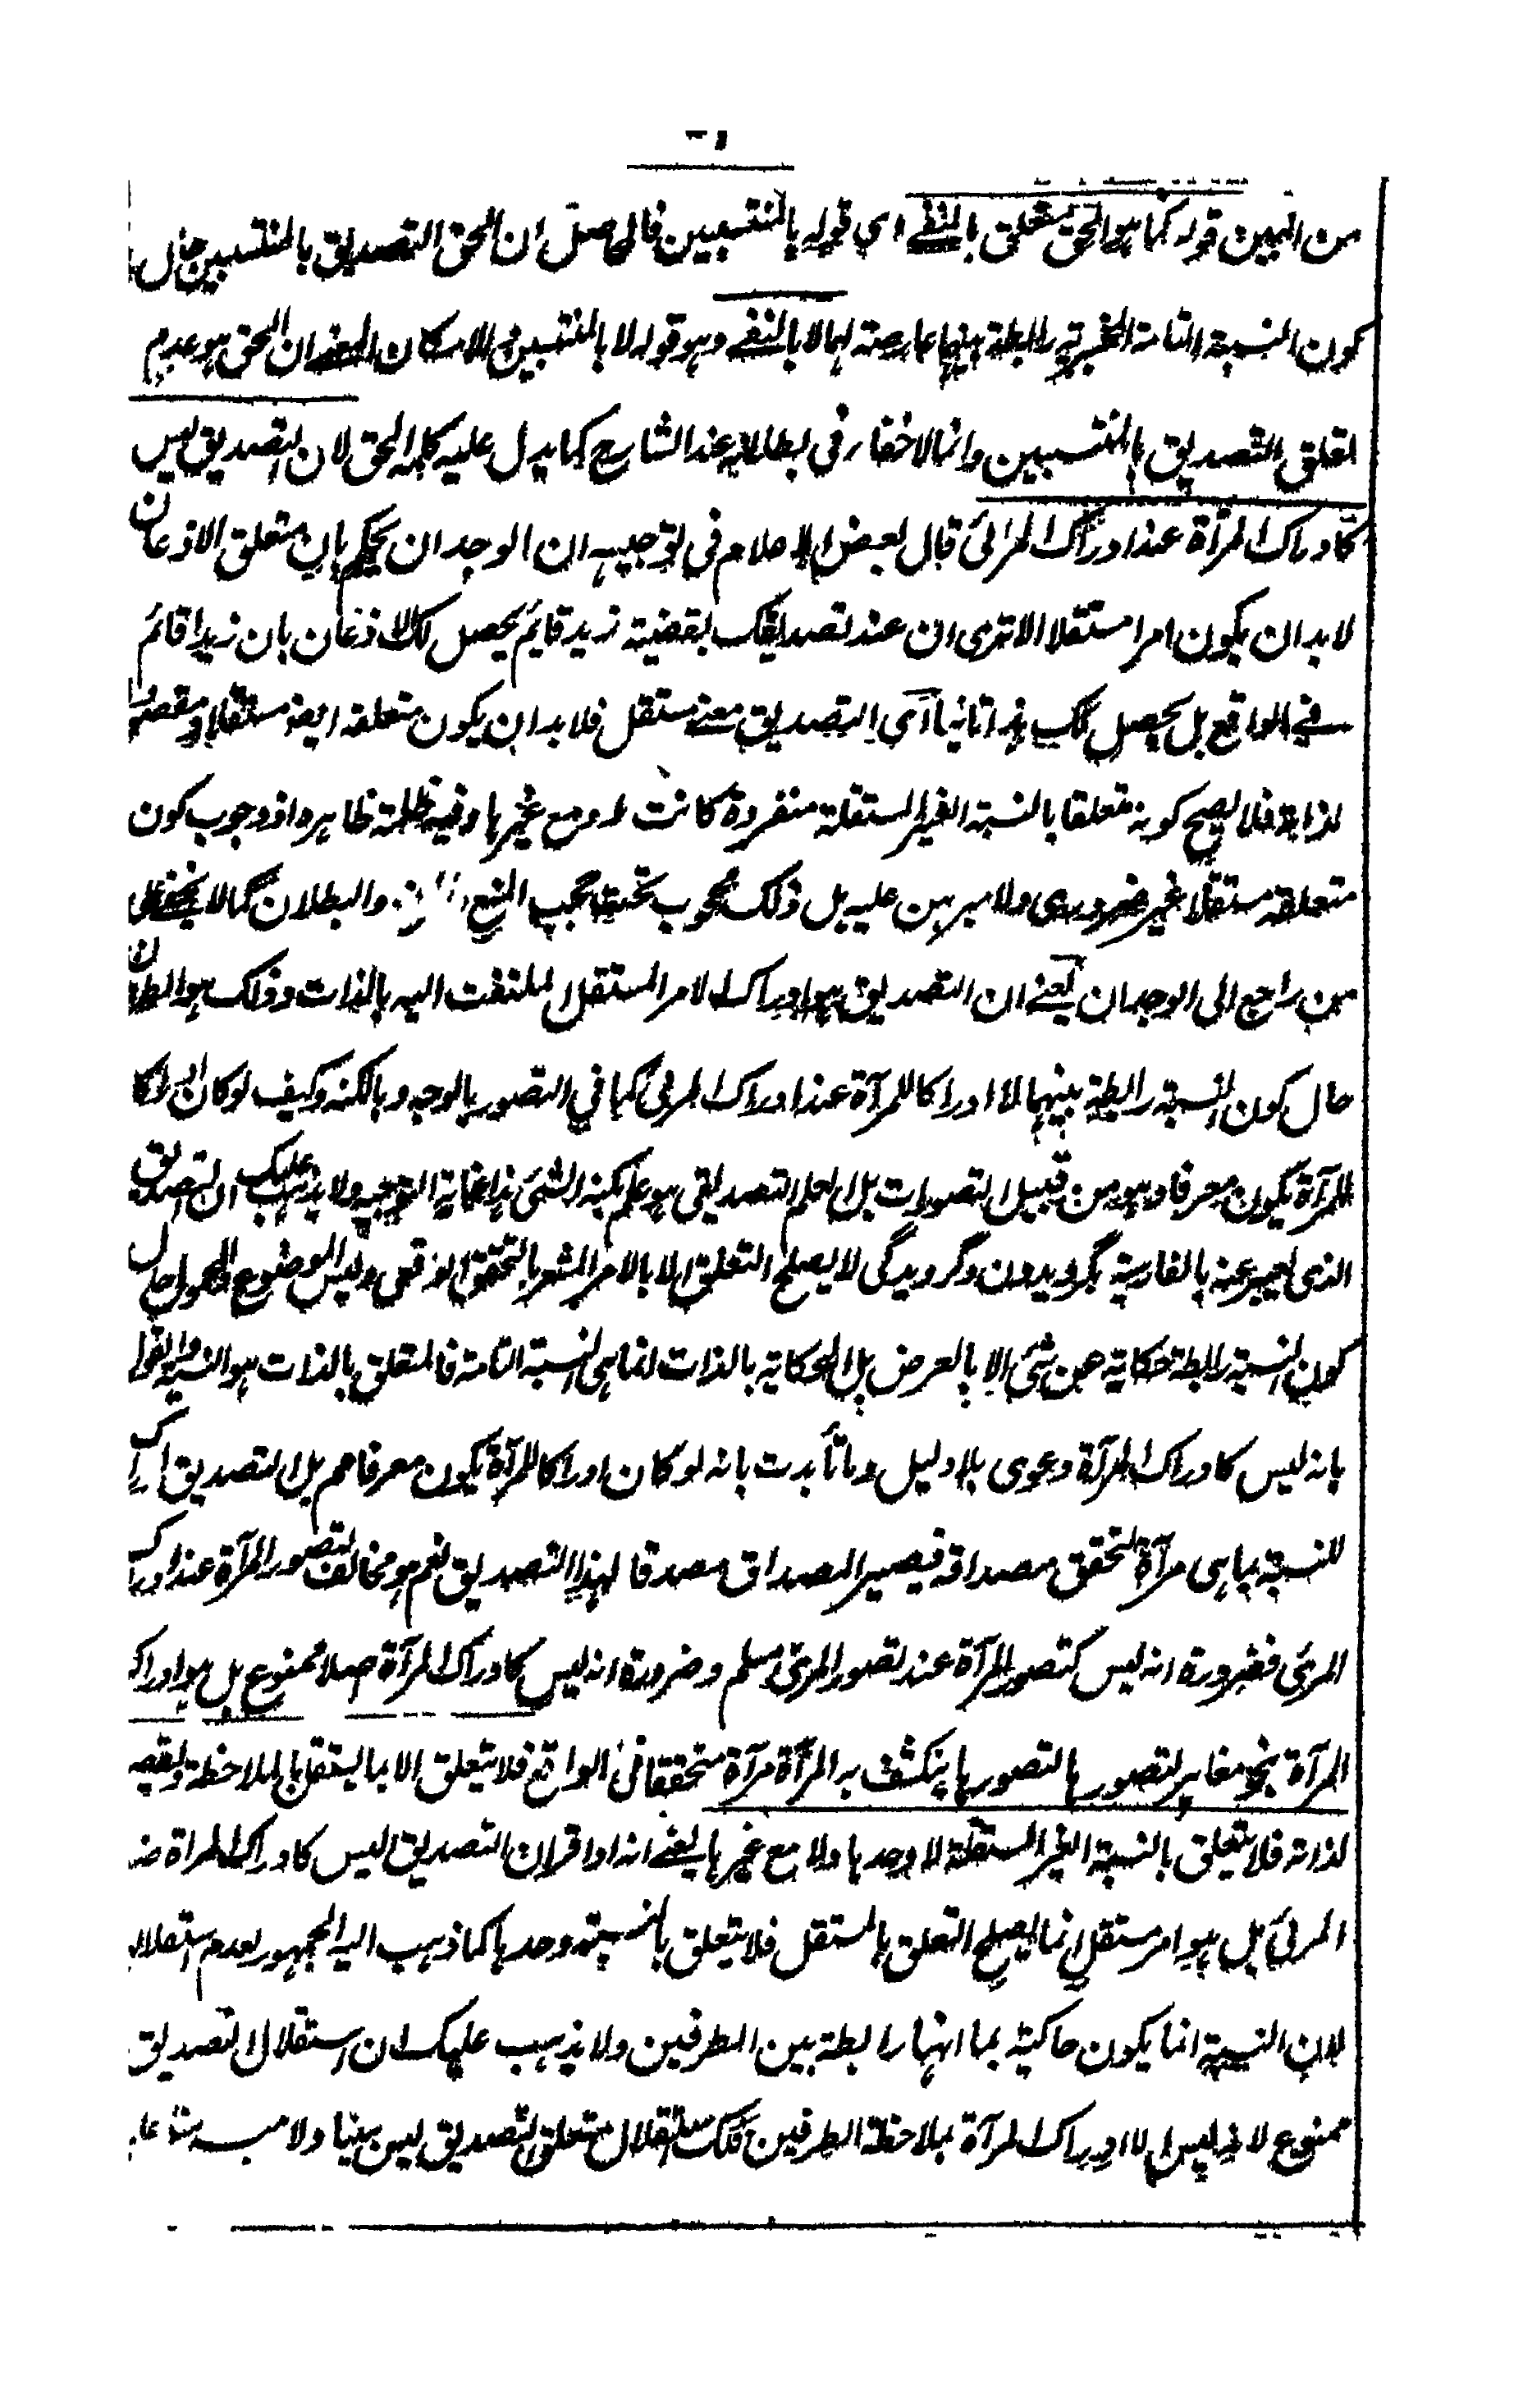 من البين قوله كما هو الحق متعلق بالمنفے اي قوله بالمنتسبين فالحاصل ان الحق التصديق بالمنتسبين حال
كون النسبة التامة الخبرية رابطة بينهما عارضة لهما لا بالنفے وهو قوله لا بالمنتسبين والا لكان المعنے ان الحق هو عدم
تعلق التصديق بالمنتسبين وانما لاخفاء في بطلانه عند الشارح كما يدل عليه كلمة الحق لان التصديق ليس
كادراك المرآة عند ادراك المرائي قال بعض الاعلام في توجيهه ان الوجدان يحكم بان متعلق الاذعان
لابد ان يكون امرا مستقلا الا ترى ان عند تصديقك بقضية زيد قائم يحصل لك الاذعان بان زيدا قائم
في الواقع بل يحصل لك هذا ثانيا اي التصديق معنے مستقل فلابد ان يكون متعلقه ايضا مستقلا ومقصودا
لذاته فلا يصح كونه متعلقا بالنسبة الغير المستقلة منفردة كانت او مع غيرها وفيه ظلمة ظاهرة اذ وجوب كون
متعلقه مستقلا غير ضروري ولا مبرهن عليه بل ذلك محجوب تحت حجب المنع والبطلان كما لا يخفے على
من راجع الى الوجدان يعنے ان التصديق هو ادراك الامر المستقل الملتفت اليه بالذات وذلك هو الطرفان
حال كون النسبة رابطة بينهما لا ادراكا للمرآة عند ادراك المرئي كما في التصور بالوجه وبالكنه وكيف لو كان ادراكا
للمرآة يكون معرفا وهو من قبيل التصورات بل العلم التصديقي هو علم بكنه الشئ هذا غاية التوجيه ولا يذهب عليك ان التصديق
الذي يعبر عنه بالفارسية بگرويدون وگرويدگى لا يصلح التعلق الا بالامر المشعر بالتحقق الواقعي وليس الموضوع والمحمول حال
كون النسبة رابطة حكاية عن شئ الا بالعرض بل الحكاية بالذات انما هي النسبة التامة فالمتعلق بالذات هو النسبة والقول
بانه ليس كادراك المرآة دعوى بلا دليل وما تأيدت بانه لو كان ادراكا للمرآة يكون معرفا هم بل التصديق ادراك
للنسبة بما هي مرآة لتحقق مصداقه فيصير المصداق مصدقا لهذا التصديق نعم هو مخالف لتصور المرآة عند ادراك
المرئي فضرورة انه ليس كتصور المرآة عند تصور المرئي مسلم وضرورة انه ليس كادراك المرآة اصلا ممنوع بل هو ادراك
المرآة بنحو مغاير لتصورها لتصورها ينكشف به المرآة مرآة متحققا في الواقع فلا يتعلق الا بما يستقل بالملاحظة ويقصد
لذاته فلا يتعلق بالنسبة الغير المستقلة لا وحدها ولا مع غيرها يعنے انه اذا قران التصديق ليس كادراك المرآة عند
المرئي بل هو امر مستقل انما يصلح التعلق بالمستقل فلا يتعلق بالنسبة وحدها كما ذهب اليه الجمهور لعدم استقلالها
لان النسبة انما يكون حاكية بما انها رابطة بين الطرفين ولا يذهب عليك ان استقلال التصديق
ممنوع لانه ليس الا ادراك المرآة بملاحظة الطرفين وكذلك استقلال متعلق التصديق ليس بينا ولا